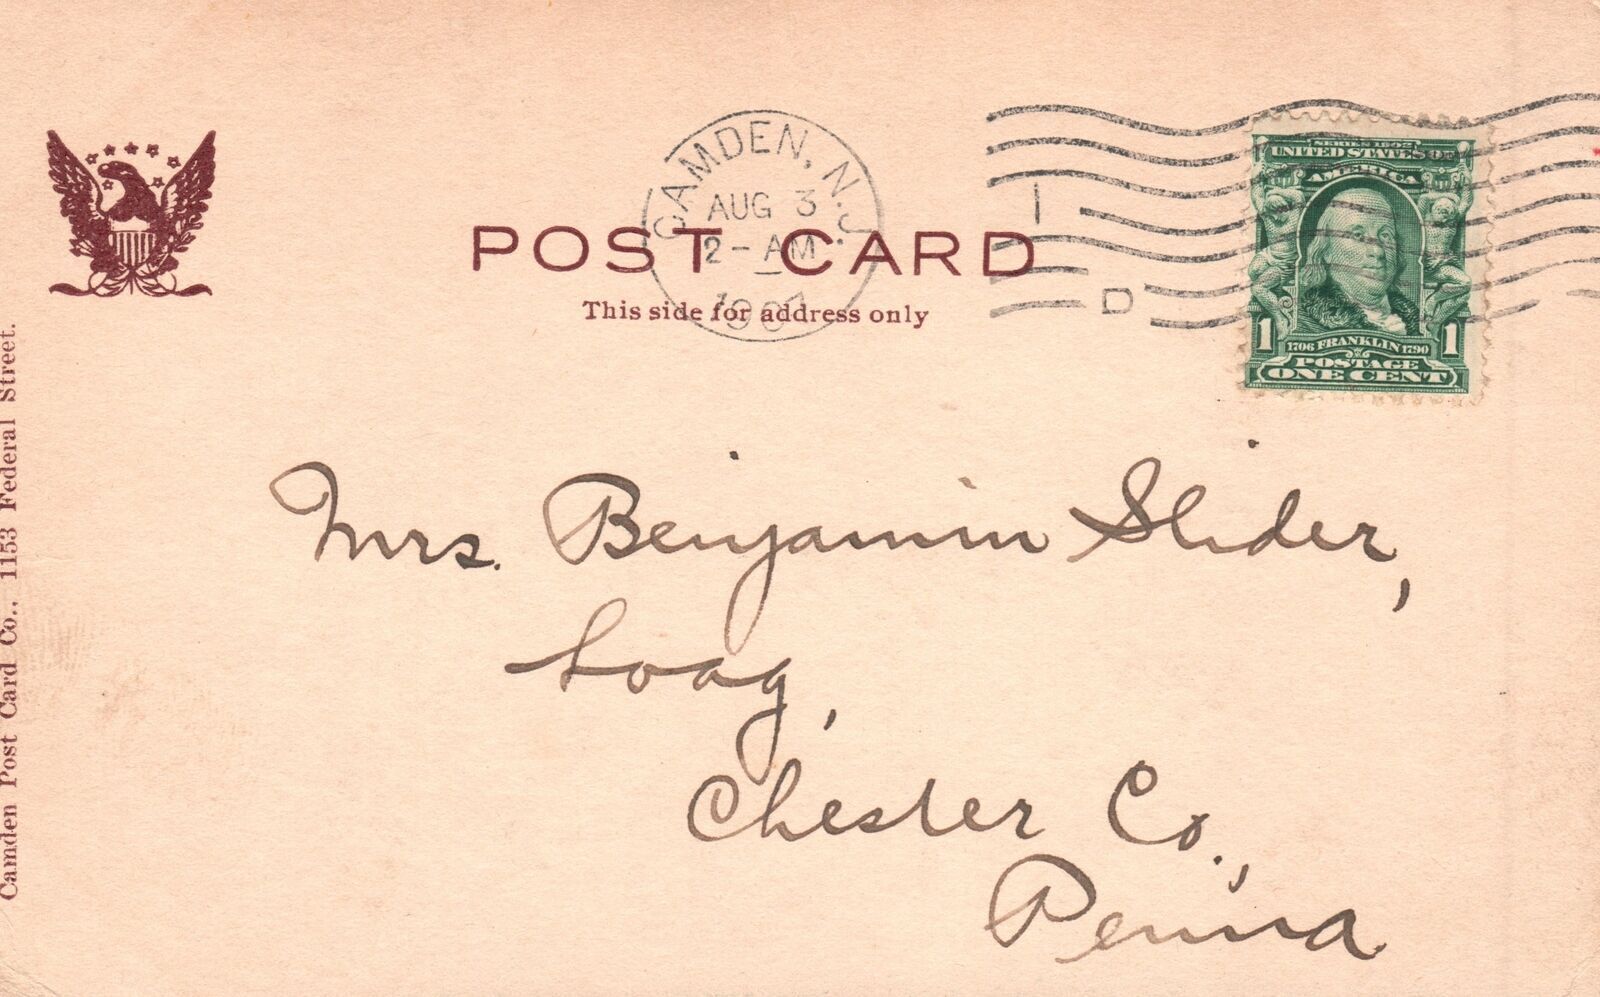 CAMDEN, N.J.
AUG 3
2-AM
1907
POST CARD
This side for address only
D
SERIES 1902
UNITED STATES OF
AMERICA
1 1
1706 FRANKLIN 1790
POSTAGE
ONE CENT
Mrs. Benjamin Slider,
Loag,
Chester Co.,
Penna.
Camden Post Card Co., 1153 Federal Street.